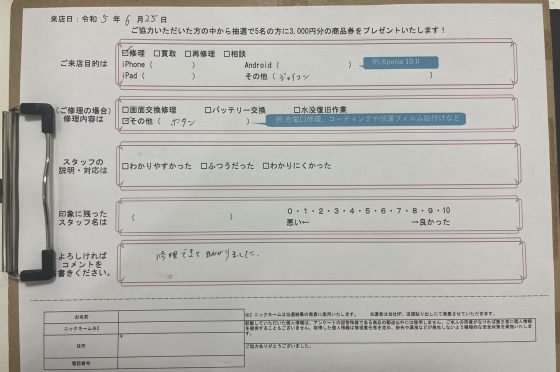 来店日：令和 5 年 6 月 25 日
ご協力いただいた方の中から抽選で5名の方に3,000円分の商品券をプレゼントいたします！
ご来店目的は
☑修理 □買取 □再修理 □相談
iPhone（ ） Android（ ） 例:Xperia 10 II
iPad（ ） その他（ ジョイコン ）
（ご修理の場合）
修理内容は
□画面交換修理 □バッテリー交換 □水没復旧作業
☑その他（ ボタン ） 例:充電口修理、コーティングや保護フィルム貼付けなど
スタッフの
説明・対応は
□わかりやすかった □ふつうだった □わかりにくかった
印象に残った
スタッフ名は
（ ）
0・1・2・3・4・5・6・7・8・9・10
悪い← →良かった
よろしければ
コメントを
書きください。
修理できて助かりました.
お名前
ニックネーム※2
住所
〒
電話番号
※2 ニックネームは当選結果の発表に使用いたします。 当選者は当社HP、店頭貼り出しにて発表させていただきます。
ご協力ありがとうございました。